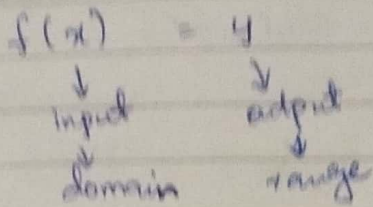 f(x) = y
input output
domain range